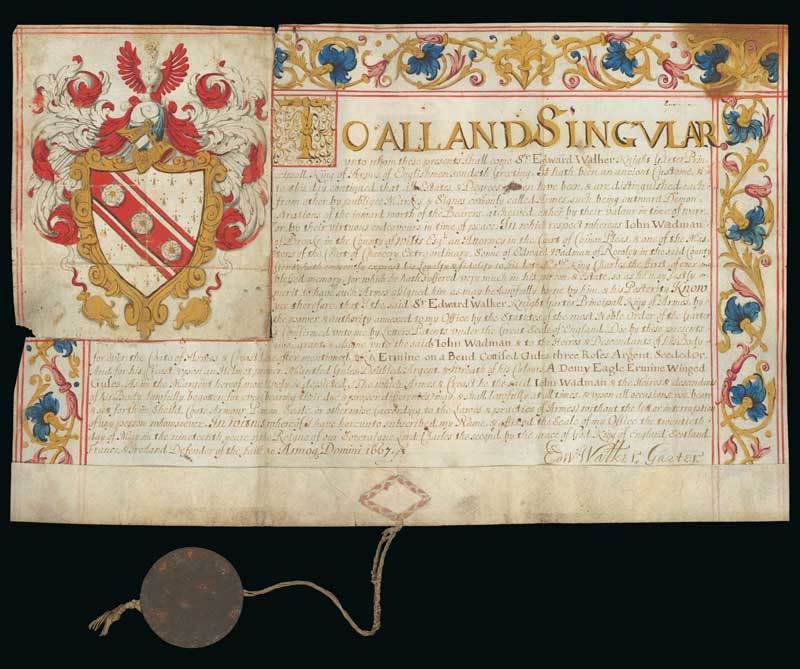 TO ALL AND SINGVLAR
unto whom these presents shall come Sr. Edward Walker Knight Garter Prin-
cipall King of Armes of Englishmen sendeth Greeting. It hath been an ancient Custome, &
to this day continued that Estates & Degrees of men have been & are distinguished each
from other by publique Markes & Signes comonly called Armes, such being outward Demon-
strations of the inward worth of the Bearers, atcheived either by their valour in time of war,
or by their virtuous endeavours in time of peace. In which respect whereas Iohn Wadman
of in the County of Wilts Esqr. an Attorney in the Court of Comon Pleas, & one of the Mas-
ters of the Court of Chancery Extraordinary, Sonne of Edward Wadman of in the said County
hath constantly exprest his Loyalty & fidelity to his late Matie. King Charles the first of ever
blessed memory, for which he hath suffered very much in his person & estate, & doth Justly
merit to have such Armes assigned him as may be lawfully borne by him & his Posterity. Know
yee therefore, that I the said Sr. Edward Walker, Knight, Garter Principall King of Armes, by
the power & authority annexed to my Office by the Statutes of the most Noble Order of the Garter
& confirmed unto me by Letters Patents under the Great Seale of England, Doe by these presents
grant & assigne unto the said Iohn Wadman & to the Heires & Descendants of his Body
for ever the Coate of Armes & Crest hereafter mentioned, Ermine on a Bend Cottised Gules three Roses Argent Seeded Or.
And for his Crest upon an Helmet proper Mantled Gules Doubled Argent & Wreath of his Colours, A Demy Eagle Ermine Winged
Gules, As in the Margent hereof more lively is depicted. The which Armes & Crest he the said Iohn Wadman & the Heires & descendants
of his Body lawfully begotten for ever, bearing their due & proper differences, & shall lawfully at all times & upon all occasions, use, beare
& set forth in Shield, Coate Armour, Penon, Seale, or otherwise (according to the Lawes & practice of Armes) without the lett or interruption
of any person whomsoever. In witnes whereof I have hereunto subscribed my Name, & affixed the Seale of my Office, the twentieth
day of May in the nineteenth yeare of the Reigne of our Soveraigne Lord Charles the second by the grace of God King of England, Scotland,
France & Ireland Defender of the faith &c Annoq Domini 1667.
Edw: Walker Garter